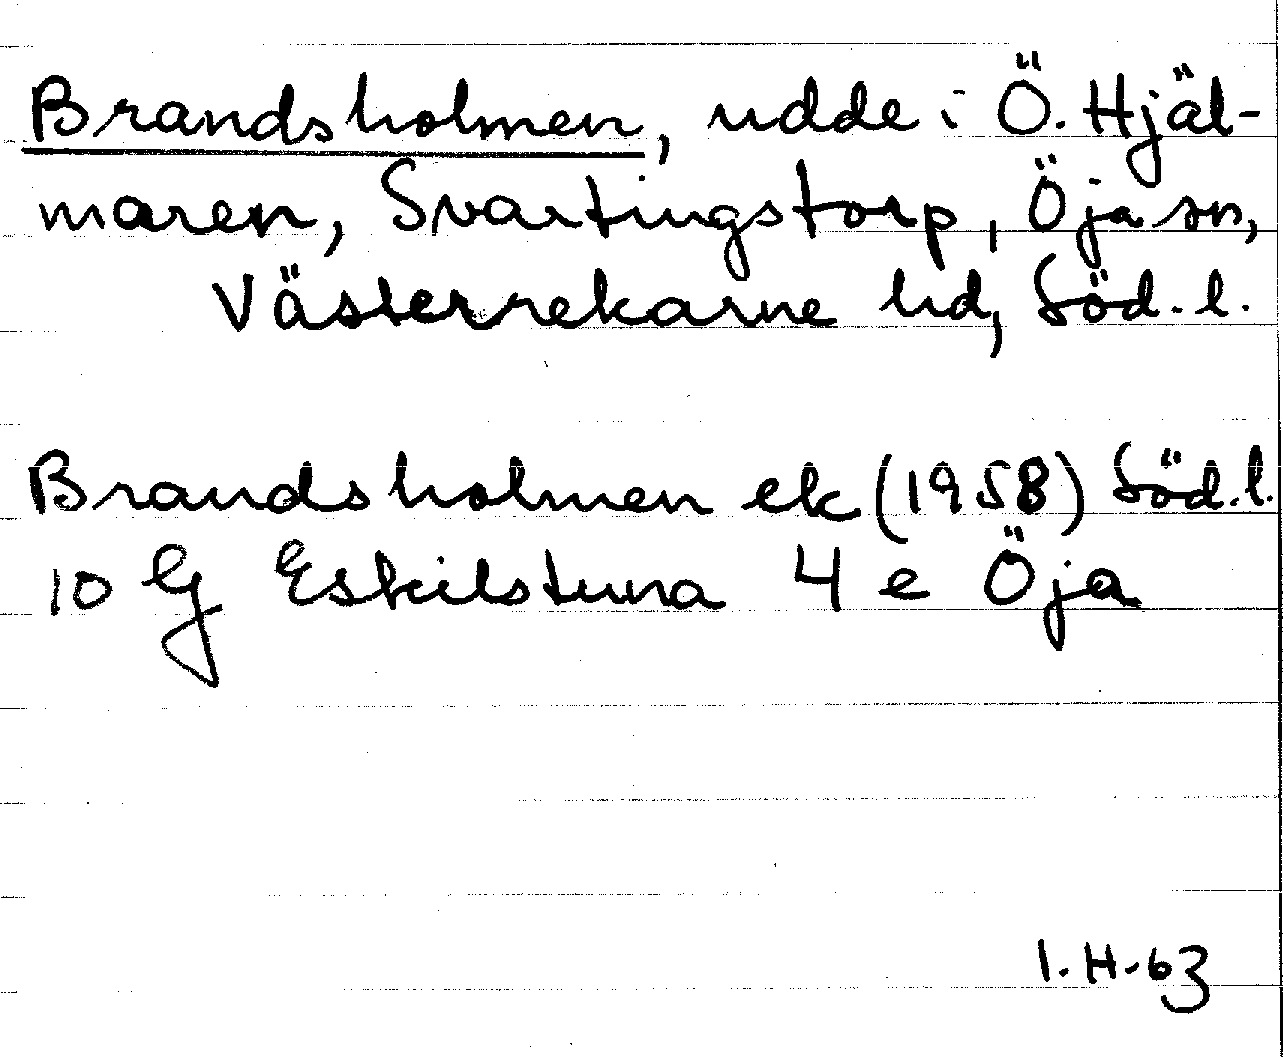 Brandsholmen, udde i Ö. Hjäl-
maren, Svartingstorp, Öja sn,
Västerrekarne hd, Söd. l.
Brandsholmen ek (1958) Söd. l.
10 G Eskilstuna 4 e Öja
I. H. 63